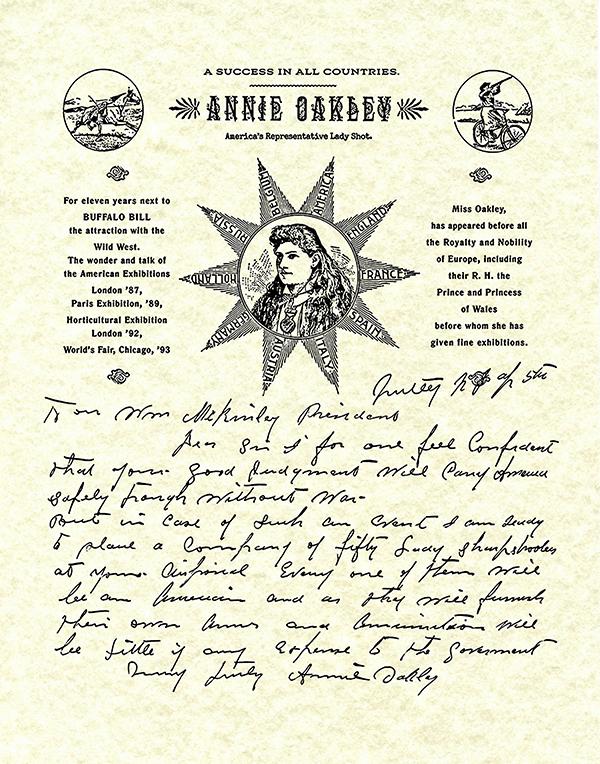 A SUCCESS IN ALL COUNTRIES.
ANNIE OAKLEY
America's Representative Lady Shot.
For eleven years next to
BUFFALO BILL
the attraction with the
Wild West.
The wonder and talk of
the American Exhibitions
London '87,
Paris Exhibition, '89,
Horticultural Exhibition
London '92,
World's Fair, Chicago, '93
BELGIUM
AMERICA
ENGLAND
FRANCE
SPAIN
ITALY
AUSTRIA
GERMANY
HOLLAND
RUSSIA
Miss Oakley,
has appeared before all
the Royalty and Nobility
of Europe, including
their R. H. the
Prince and Princess
of Wales
before whom she has
given fine exhibitions.
Nutley N.J. 5th
Hon Wm McKinley President
Dear Sir I for one feel Confident
that your good judgment will carry America
safely through without War-
But in case of such an event I am ready
to place a Company of fifty Lady sharpshooters
at your disposal Every one of them will
be an American and as they will furnish
their own Arms and Ammunition will
be little if any expense to the government
Very truly Annie Oakley